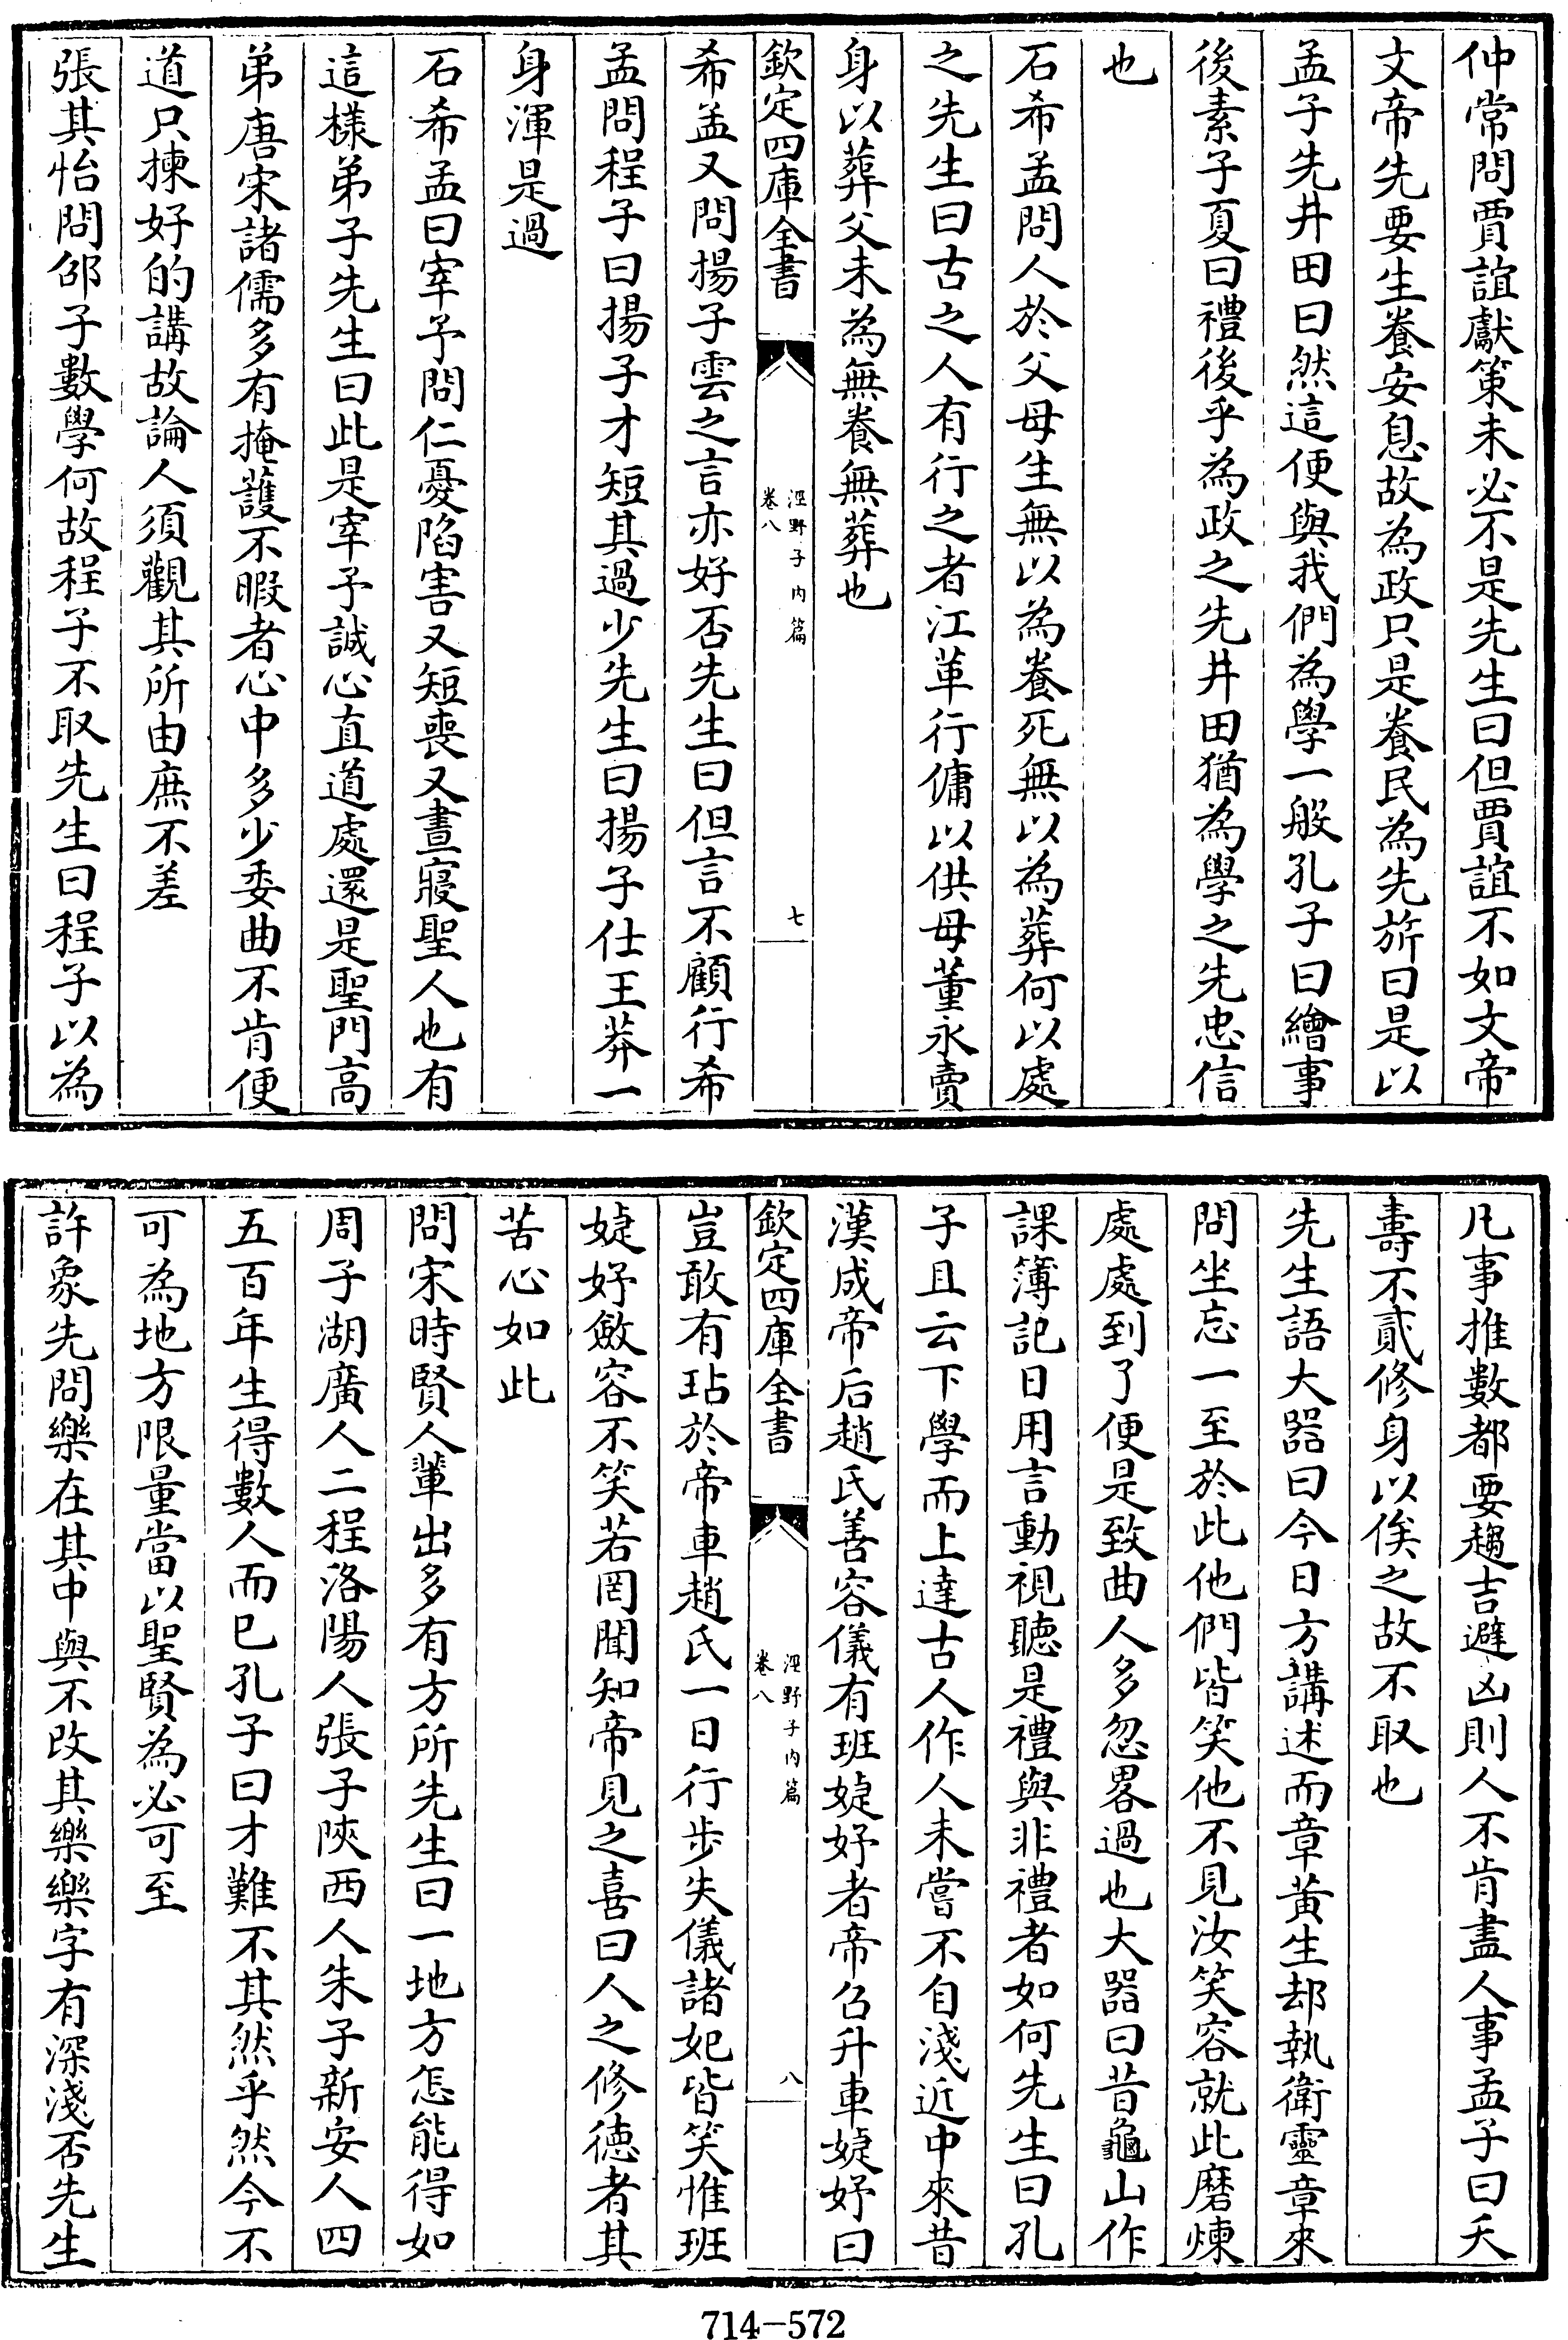 仲常問賈誼獻策未必不是先生曰但賈誼不如文帝
文帝先要生養安息故為政只是養民為先旂曰是以
孟子先井田曰然這便與我們為學一般孔子曰繪事
後素子夏曰禮後乎為政之先井田猶為學之先忠信
也
石希孟問人於父母生無以為養死無以為葬何以處
之先生曰古之人有行之者江革行傭以供母董永賣
身以葬父未為無養無葬也
欽定四庫全書
涇野子內篇
卷八
七
希孟又問揚子雲之言亦好否先生曰但言不顧行希
孟問程子曰揚子才短其過少先生曰揚子仕王莽一
身渾是過
石希孟曰宰予問仁憂陷害又短喪又晝寢聖人也有
這樣弟子先生曰此是宰予誠心直道處還是聖門高
弟唐宋諸儒多有掩護不暇者心中多少委曲不肯便
道只揀好的講故論人須觀其所由庶不差
張其怡問邵子數學何故程子不取先生曰程子以為
凡事推數都要趨吉避凶則人不肯盡人事孟子曰夭
壽不貳修身以俟之故不取也
先生語大器曰今日方講述而章黃生却執衛靈章來
問坐忘一至於此他們皆笑他不見汝笑容就此磨煉
處處到了便是致曲人多忽畧過也大器曰昔龜山作
課簿記日用言動視聽是禮與非禮者如何先生曰孔
子且云下學而上達古人作人未嘗不自淺近中來昔
漢成帝后趙氏善容儀有班婕妤者帝召升車婕妤曰
欽定四庫全書
涇野子內篇
卷八
八
豈敢有玷於帝車趙氏一日行步失儀諸妃皆笑惟班
婕妤斂容不笑若罔聞知帝見之喜曰人之修德者其
苦心如此
問宋時賢人輩出多有方所先生曰一地方怎能得如
周子湖廣人二程洛陽人張子陝西人朱子新安人四
五百年生得數人而已孔子曰才難不其然乎然今不
可為地方限量當以聖賢為必可至
許象先問樂在其中與不改其樂樂字有深淺否先生
714-572